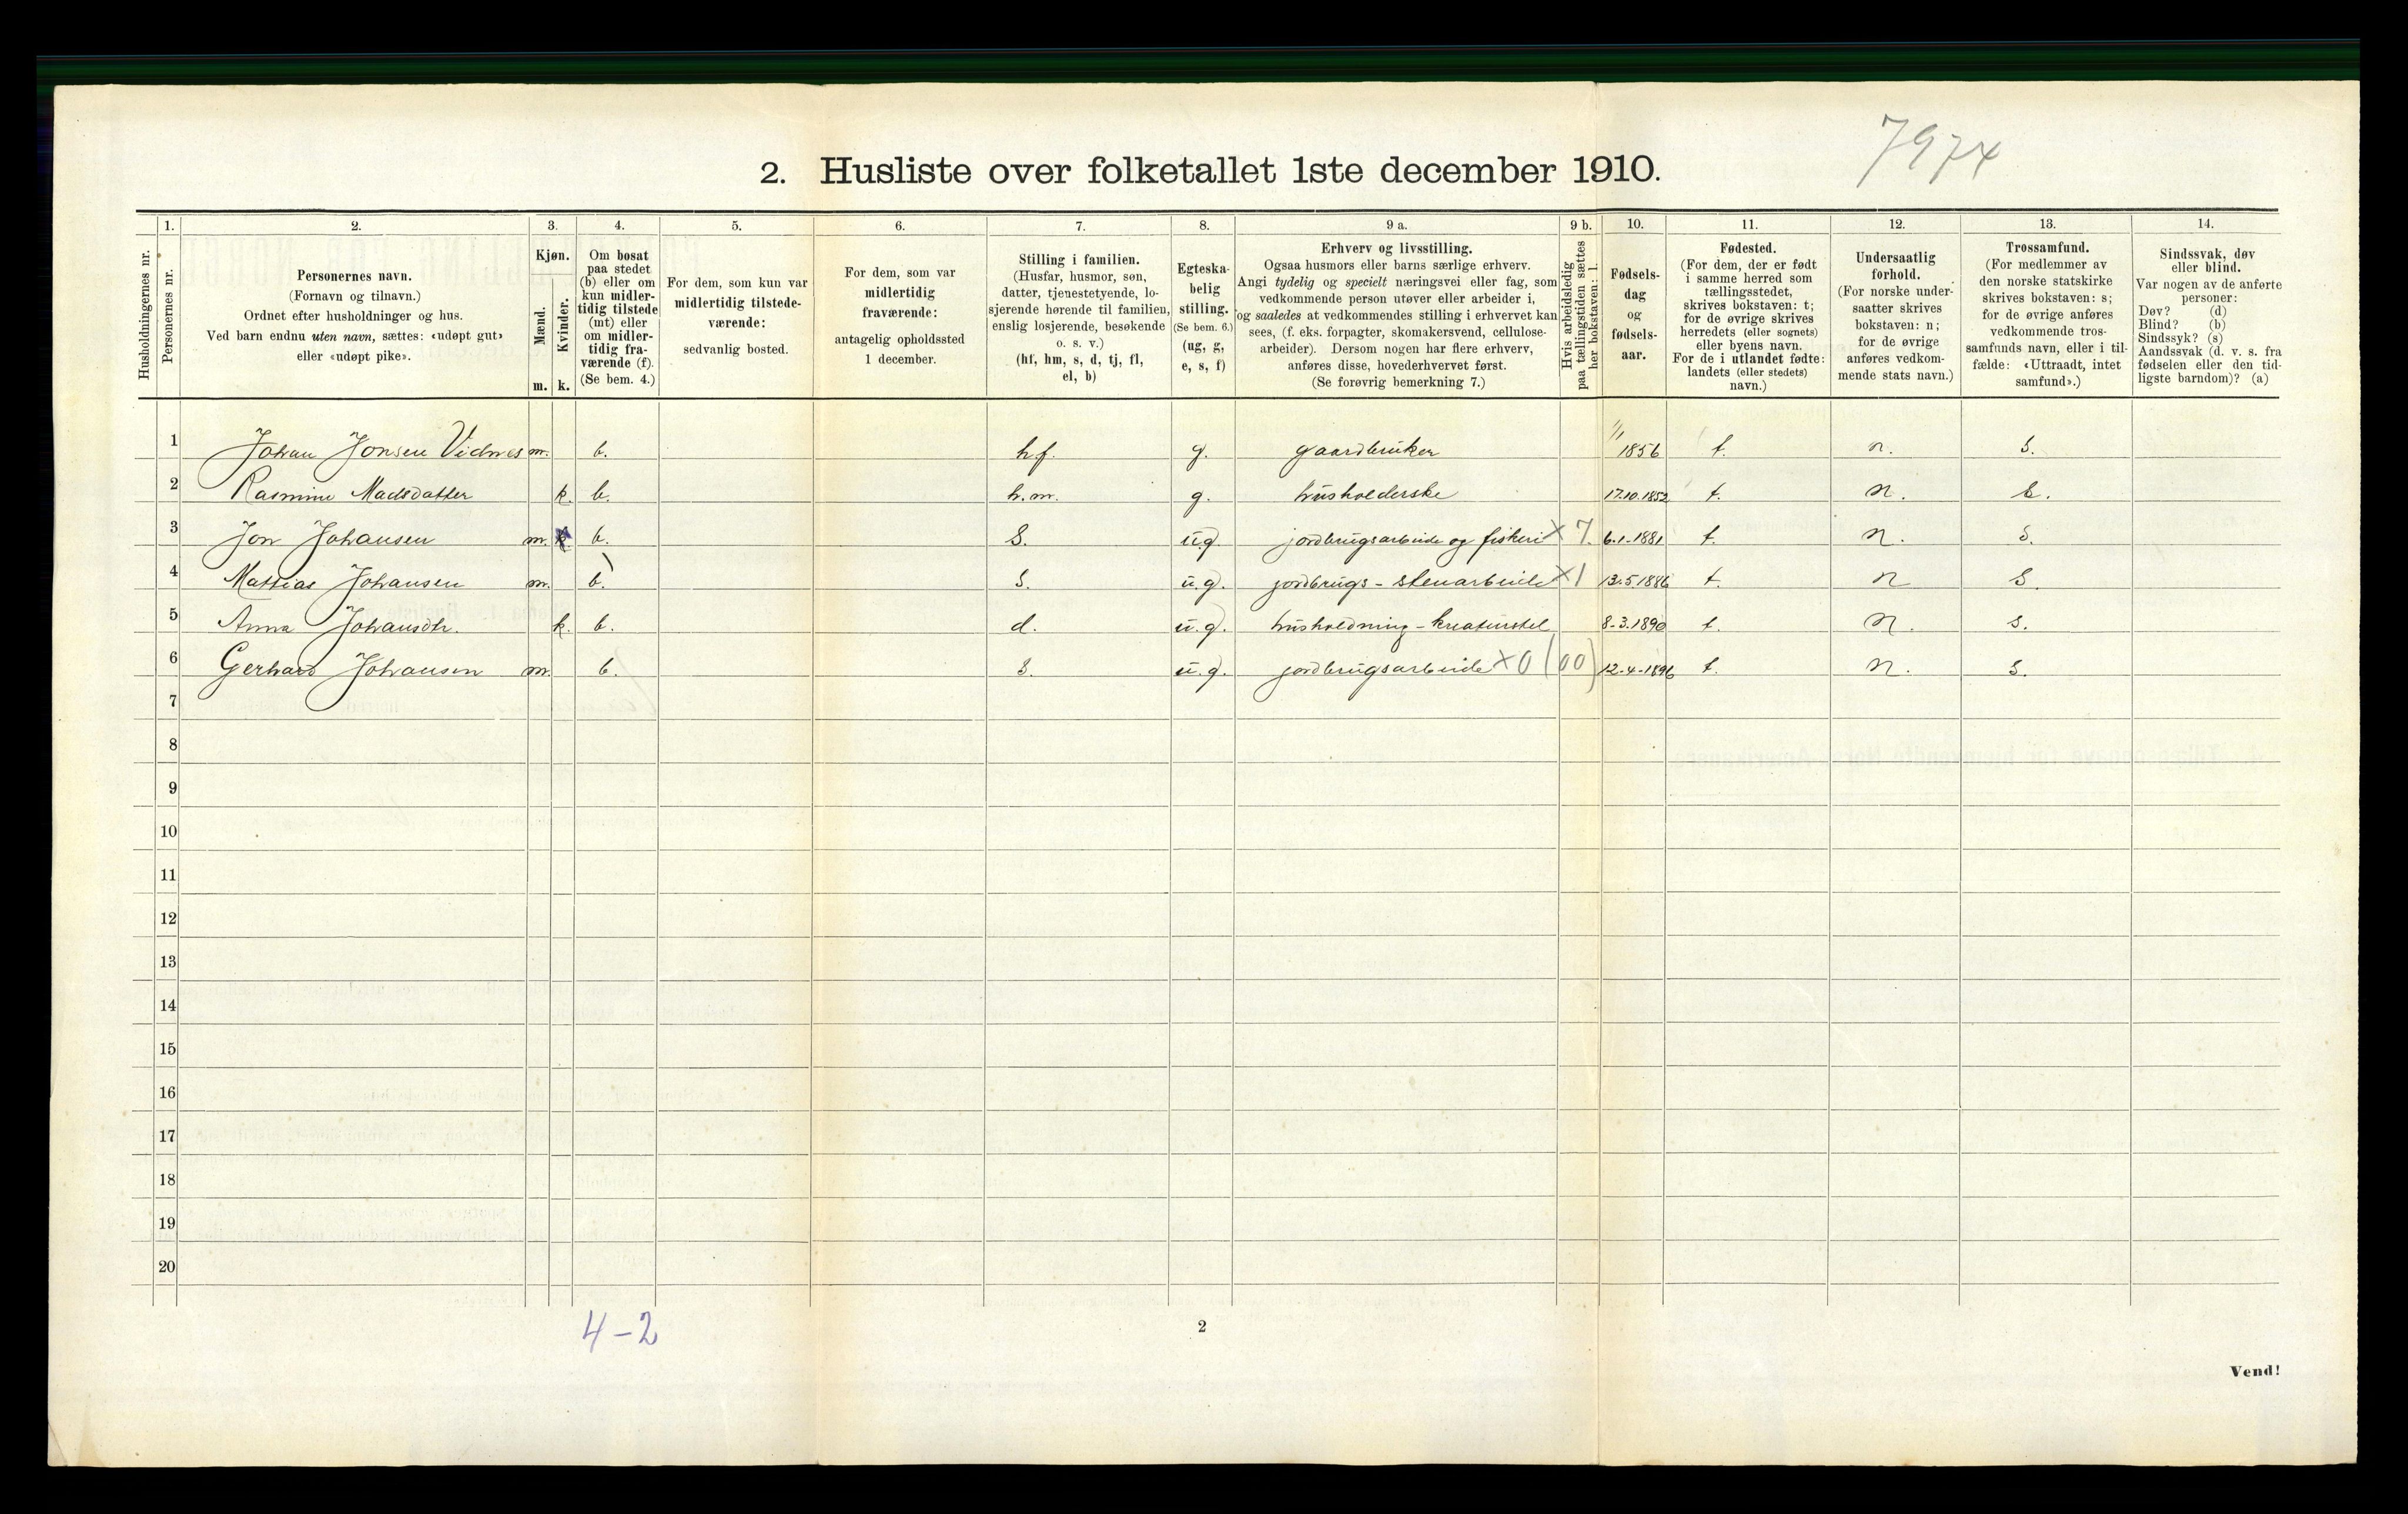 7974
2. Husliste over folketallet 1ste december 1910.
Husholdningernes nr.
1. Personernes nr.
2. Personernes navn. (Fornavn og tilnavn.) Ordnet efter husholdninger og hus. Ved barn endnu uten navn, sættes: «udøpt gut» eller «udøpt pike».
3. Kjøn. Mænd. m. Kvinder. k.
4. Om bosat paa stedet (b) eller om kun midlertidig tilstede (mt) eller om midlertidig fraværende (f). (Se bem. 4.)
5. For dem, som kun var midlertidig tilstedeværende: sedvanlig bosted.
6. For dem, som var midlertidig fraværende: antagelig opholdssted 1 december.
7. Stilling i familien. (Husfar, husmor, søn, datter, tjenestetyende, losjerende hørende til familien, enslig losjerende, besøkende o. s. v.) (hf, hm, s, d, tj, fl, el, b)
8. Egteskabelig stilling. (Se bem. 6.) (ug, g, e, s, f)
9 a. Erhverv og livsstilling. Ogsaa husmors eller barns særlige erhverv. Angi tydelig og specielt næringsvei eller fag, som vedkommende person utøver eller arbeider i, og saaledes at vedkommendes stilling i erhvervet kan sees, (f. eks. forpagter, skomakersvend, cellulosearbeider). Dersom nogen har flere erhverv, anføres disse, hovederhvervet først. (Se forøvrig bemerkning 7.)
9 b. Hvis arbeidsledig paa tællingstiden sættes her bokstaven: l.
10. Fødselsdag og fødselsaar.
11. Fødested. (For dem, der er født i samme herred som tællingsstedet, skrives bokstaven: t; for de øvrige skrives herredets (eller sognets) eller byens navn. For de i utlandet fødte: landets (eller stedets) navn.)
12. Undersaatlig forhold. (For norske undersaatter skrives bokstaven: n; for de øvrige anføres vedkommende stats navn.)
13. Trossamfund. (For medlemmer av den norske statskirke skrives bokstaven: s; for de øvrige anføres vedkommende trossamfunds navn, eller i tilfælde: «Uttraadt, intet samfund».)
14. Sindssvak, døv eller blind. Var nogen av de anførte personer: Døv? (d) Blind? (b) Sindssyk? (s) Aandssvak (d. v. s. fra fødselen eller den tidligste barndom)? (a)
1 Johan Jonsen Vidnes m. b. hf. g. gaardbruker 1/1 1856 t. n. s.
2 Rasmine Madsdatter k. b. h.m. g. husholderske 17.10.1852 t. n. s.
3 Jon Johansen m. b. s. ug. jordbrugsarbeide og fiskeri X 7. 6.1.1881 t. n. s.
4 Mathias Johansen m. b. s. u.g. jordbrugs - stenarbeide X 1 13.5.1886 t. n s.
5 Anna Johansdtr. k. b. d. u.g. husholdning - kreaturstel 8-3.1890 t. n. s.
6 Gerhard Johansen m. b. s. u.g. jordbrugsarbeide X 0 (00) 12-4-1896 t. n. s.
7
8
9
10
11
12
13
14
15
16
17
18
19
20
4-2
2
Vend!